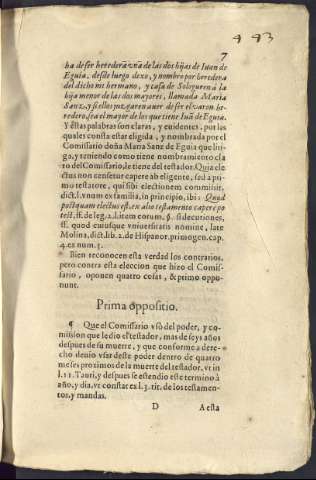 443
7
ha de ser heredera vna de las dos hijas de Iuan de
Eguia, desde luego dexo, y nombro por heredera
del dicho mi hermano, y casa de Sologuren à la
hija menor de las dos mayores, llamada Maria
Sanz, y si ellos juzgaren auer de ser el varon he-
redero, sea el mayor de los que tiene Iuã de Eguia.
Y estas palabras son claras, y euidentes, por las
quales consta estar eligida, y nombrada por el
Comissario doña Maria Sanz de Eguia que liti-
ga, y teniendo como tiene nombramiento cla
ro del Comissario, le tiene del testador. Quia ele
ctus non censetur capere ab eligente, sed a pri-
mo testatore, qui sibi electionem commissit,
dict. l. vnum ex familia, in principio, ibi: Quod
postquam electus est, ex alio testamento capere po
test, ff. de leg. 2. l. item eorum. §. si decuriones.
ff. quod cuiusque vniuersitatis nomine, late
Molina, dict. lib. 2. de Hispanor. primogen. cap.
4. ex num. 5.
Bien reconocen esta verdad los contrarios,
pero contra esta eleccion que hizo el Comis-
sario, oponen quatro cosas, & primo oppo-
nunt.
Prima oppositio.
¶ Que el Comissario vsò del poder, y co-
mission que le dio el testador, mas de seys años
despues de su muerte, y que conforme a dere-
cho deuio vsar deste poder dentro de quatro
meses proximos de la muerte del testador, vt in
l. 33. Tauri, y despues se estendio este termino à
año, y dia, vt constat ex l. 3. tit. de los testamen-
tos, y mandas.
D
A esta